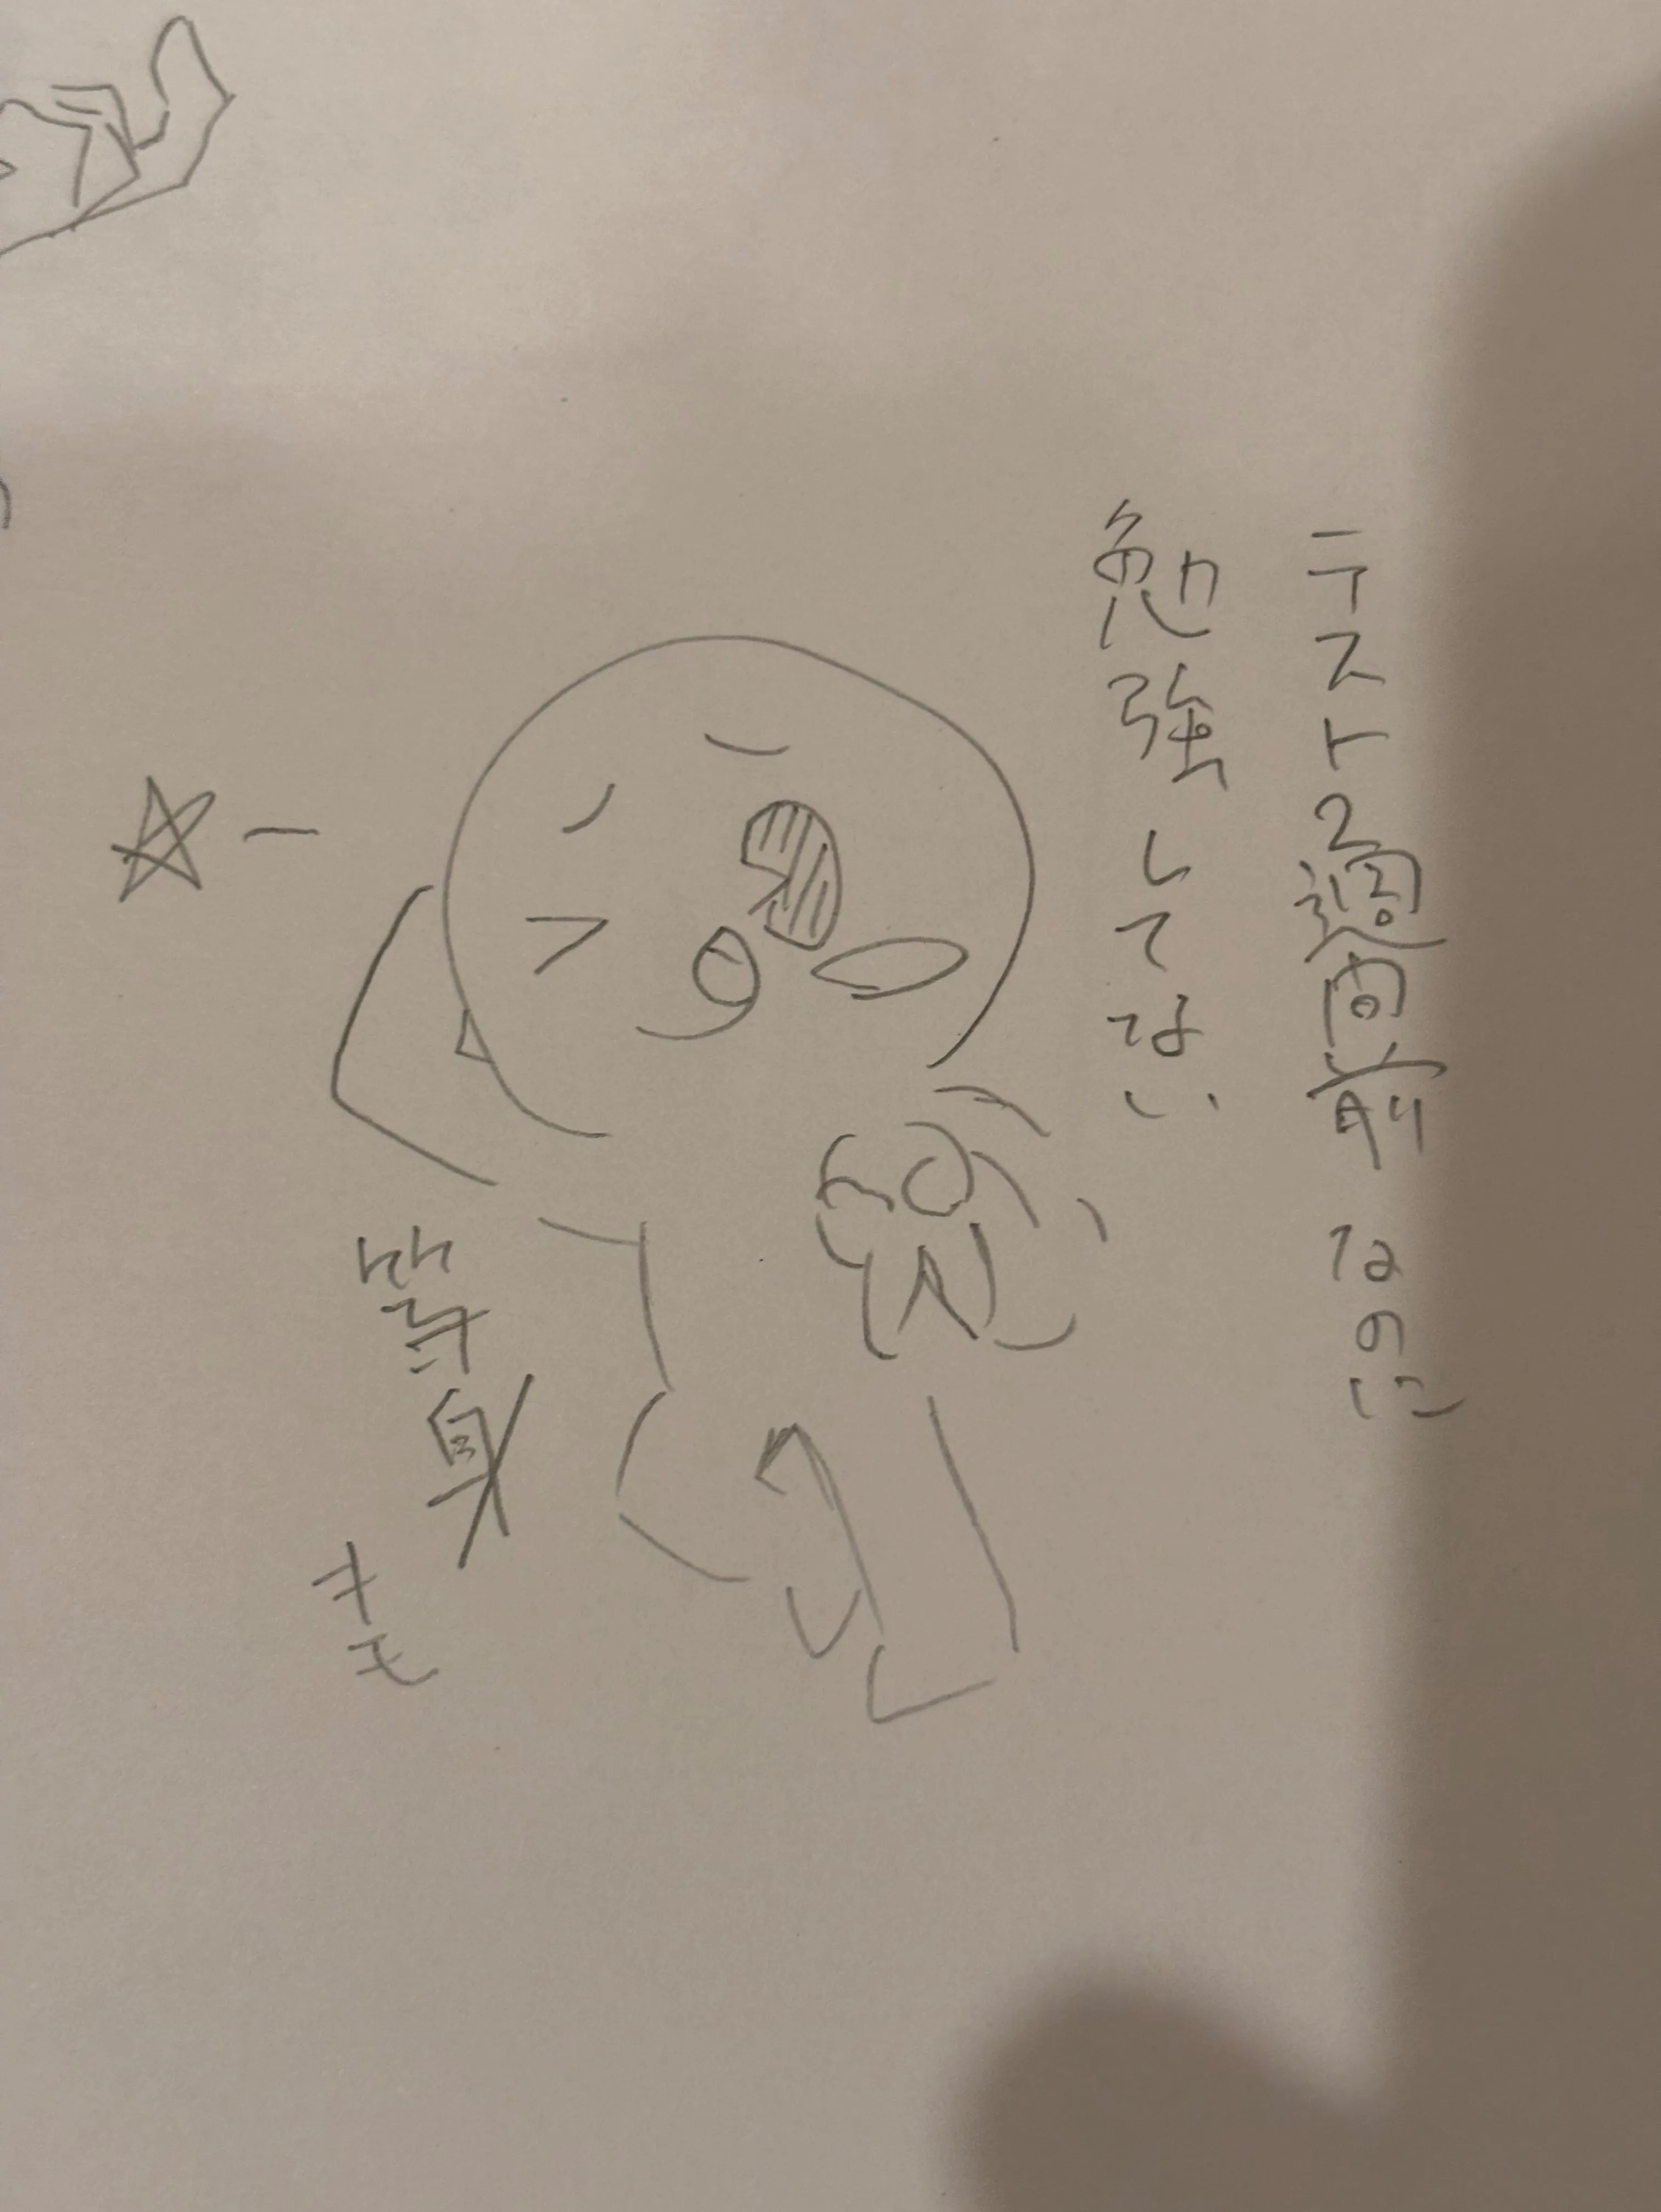 テスト2週間前なのに
勉強してない
等身
キモ